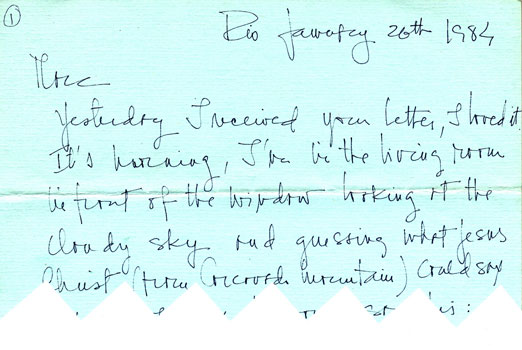 1
Rio January 26th 1984
Yesterday I received your letter, I loved it
It's morning, I'm in the living room
in front of the window looking at the
cloudy sky and guessing what Jesus
Christ (from Corcovado mountain) could say